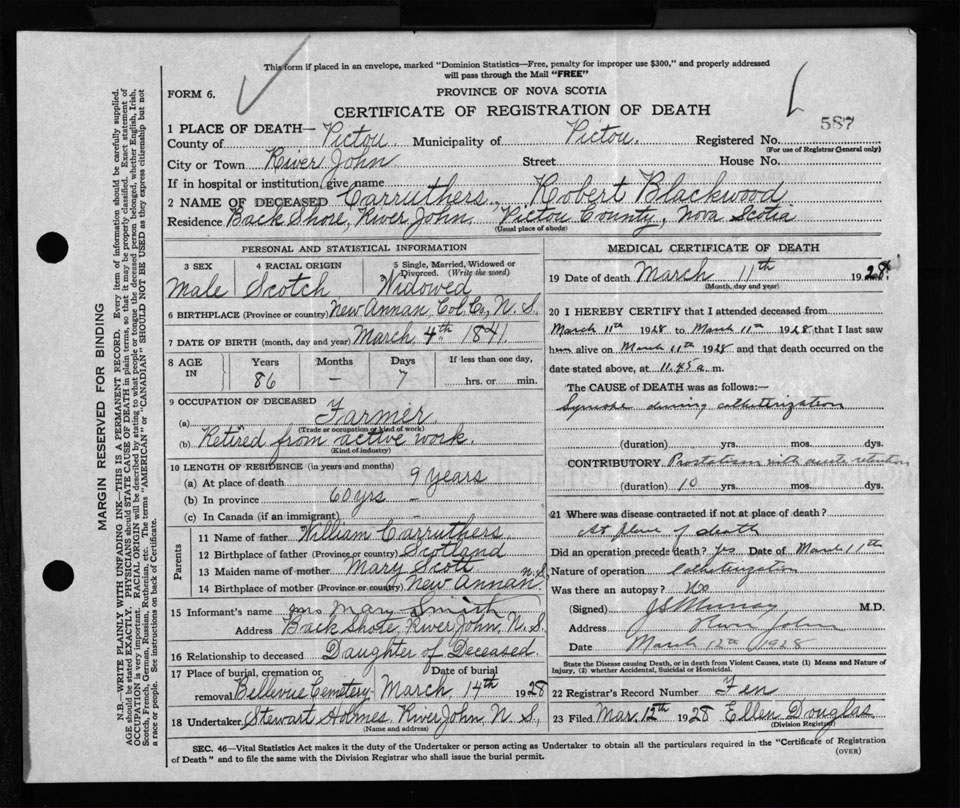 This form if placed in an envelope, marked "Dominion Statistics—Free, penalty for improper use $300," and properly addressed
will pass through the Mail "FREE"
FORM 6.
PROVINCE OF NOVA SCOTIA
CERTIFICATE OF REGISTRATION OF DEATH
587
1 PLACE OF DEATH—
County of Pictou. Municipality of Pictou. Registered No.
(For use of Registrar General only)
City or Town River John Street House No.
If in hospital or institution, give name
2 NAME OF DECEASED Carruthers, Robert Blackwood
Residence Back Shore, River John Pictou County, Nova Scotia
(Usual place of abode)
PERSONAL AND STATISTICAL INFORMATION
3 SEX 4 RACIAL ORIGIN 5 Single, Married, Widowed or
Divorced. (Write the word)
Male Scotch Widowed
6 BIRTHPLACE (Province or country) New Annan Col. Co, N. S.
7 DATE OF BIRTH (month, day and year) March 4th 1841.
8 AGE IN Years Months Days If less than one day,
86 – 7 hrs. or min.
9 OCCUPATION OF DECEASED
(a) Farmer
(Trade or occupation or kind of work)
(b) Retired from active work.
(Kind of industry)
10 LENGTH OF RESIDENCE (in years and months)
(a) At place of death 9 years
(b) In province 60 yrs. –
(c) In Canada (if an immigrant) –
Parents
11 Name of father William Carruthers
12 Birthplace of father (Province or country) Scotland
13 Maiden name of mother Mary Scott
14 Birthplace of mother (Province or country) New Annan N.S.
15 Informant's name Mrs Mary Smith
Address Back Shore, River John, N. S.
16 Relationship to deceased Daughter of Deceased.
17 Place of burial, cremation or Date of burial
removal Bellevue Cemetery March 14th 1928
18 Undertaker Stewart Holmes River John, N. S,
(Name and address)
MEDICAL CERTIFICATE OF DEATH
19 Date of death March 11th 1928.
(Month, day and year)
20 I HEREBY CERTIFY that I attended deceased from
March 11th 1928 to March 11th 1928 that I last saw
him alive on March 11th 1928 and that death occurred on the
date stated above, at 11.45 a. m.
The CAUSE of DEATH was as follows:—
Syncope during catheterization
(duration) yrs. mos. dys.
CONTRIBUTORY Prostatism with acute retention
(duration) 10 yrs. mos. dys.
21 Where was disease contracted if not at place of death?
At place of death
Did an operation precede death? Yes Date of March 11th
Nature of operation Catheterization
Was there an autopsy? No
(Signed) J S Murray M.D.
Address River John
Date March 12th 1928
State the Disease causing Death, or in death from Violent Causes, state (1) Means and Nature of
Injury, (2) whether Accidental, Suicidal or Homicidal.
22 Registrar's Record Number Ten
23 Filed Mar. 12th 1928 Ellen Douglas
(Division Registrar)
SEC. 46—Vital Statistics Act makes it the duty of the Undertaker or person acting as Undertaker to obtain all the particulars required in the "Certificate of Registration
of Death" and to file the same with the Division Registrar who shall issue the burial permit.
(OVER)
MARGIN RESERVED FOR BINDING
N.B.—WRITE PLAINLY WITH UNFADING INK—THIS IS A PERMANENT RECORD. Every item of information should be carefully supplied.
AGE should be stated EXACTLY. PHYSICIANS should STATE CAUSE OF DEATH in plain terms, so that it may be properly classified. Exact statement of
OCCUPATION is very important. RACIAL ORIGIN will be described by stating to what people or tongue the deceased person belonged, whether English, Irish,
Scotch, French, German, Russian, Ruthenian, etc. The terms "AMERICAN" or "CANADIAN" SHOULD NOT BE USED as they express citizenship but not
a race or people. See instructions on back of Certificate.